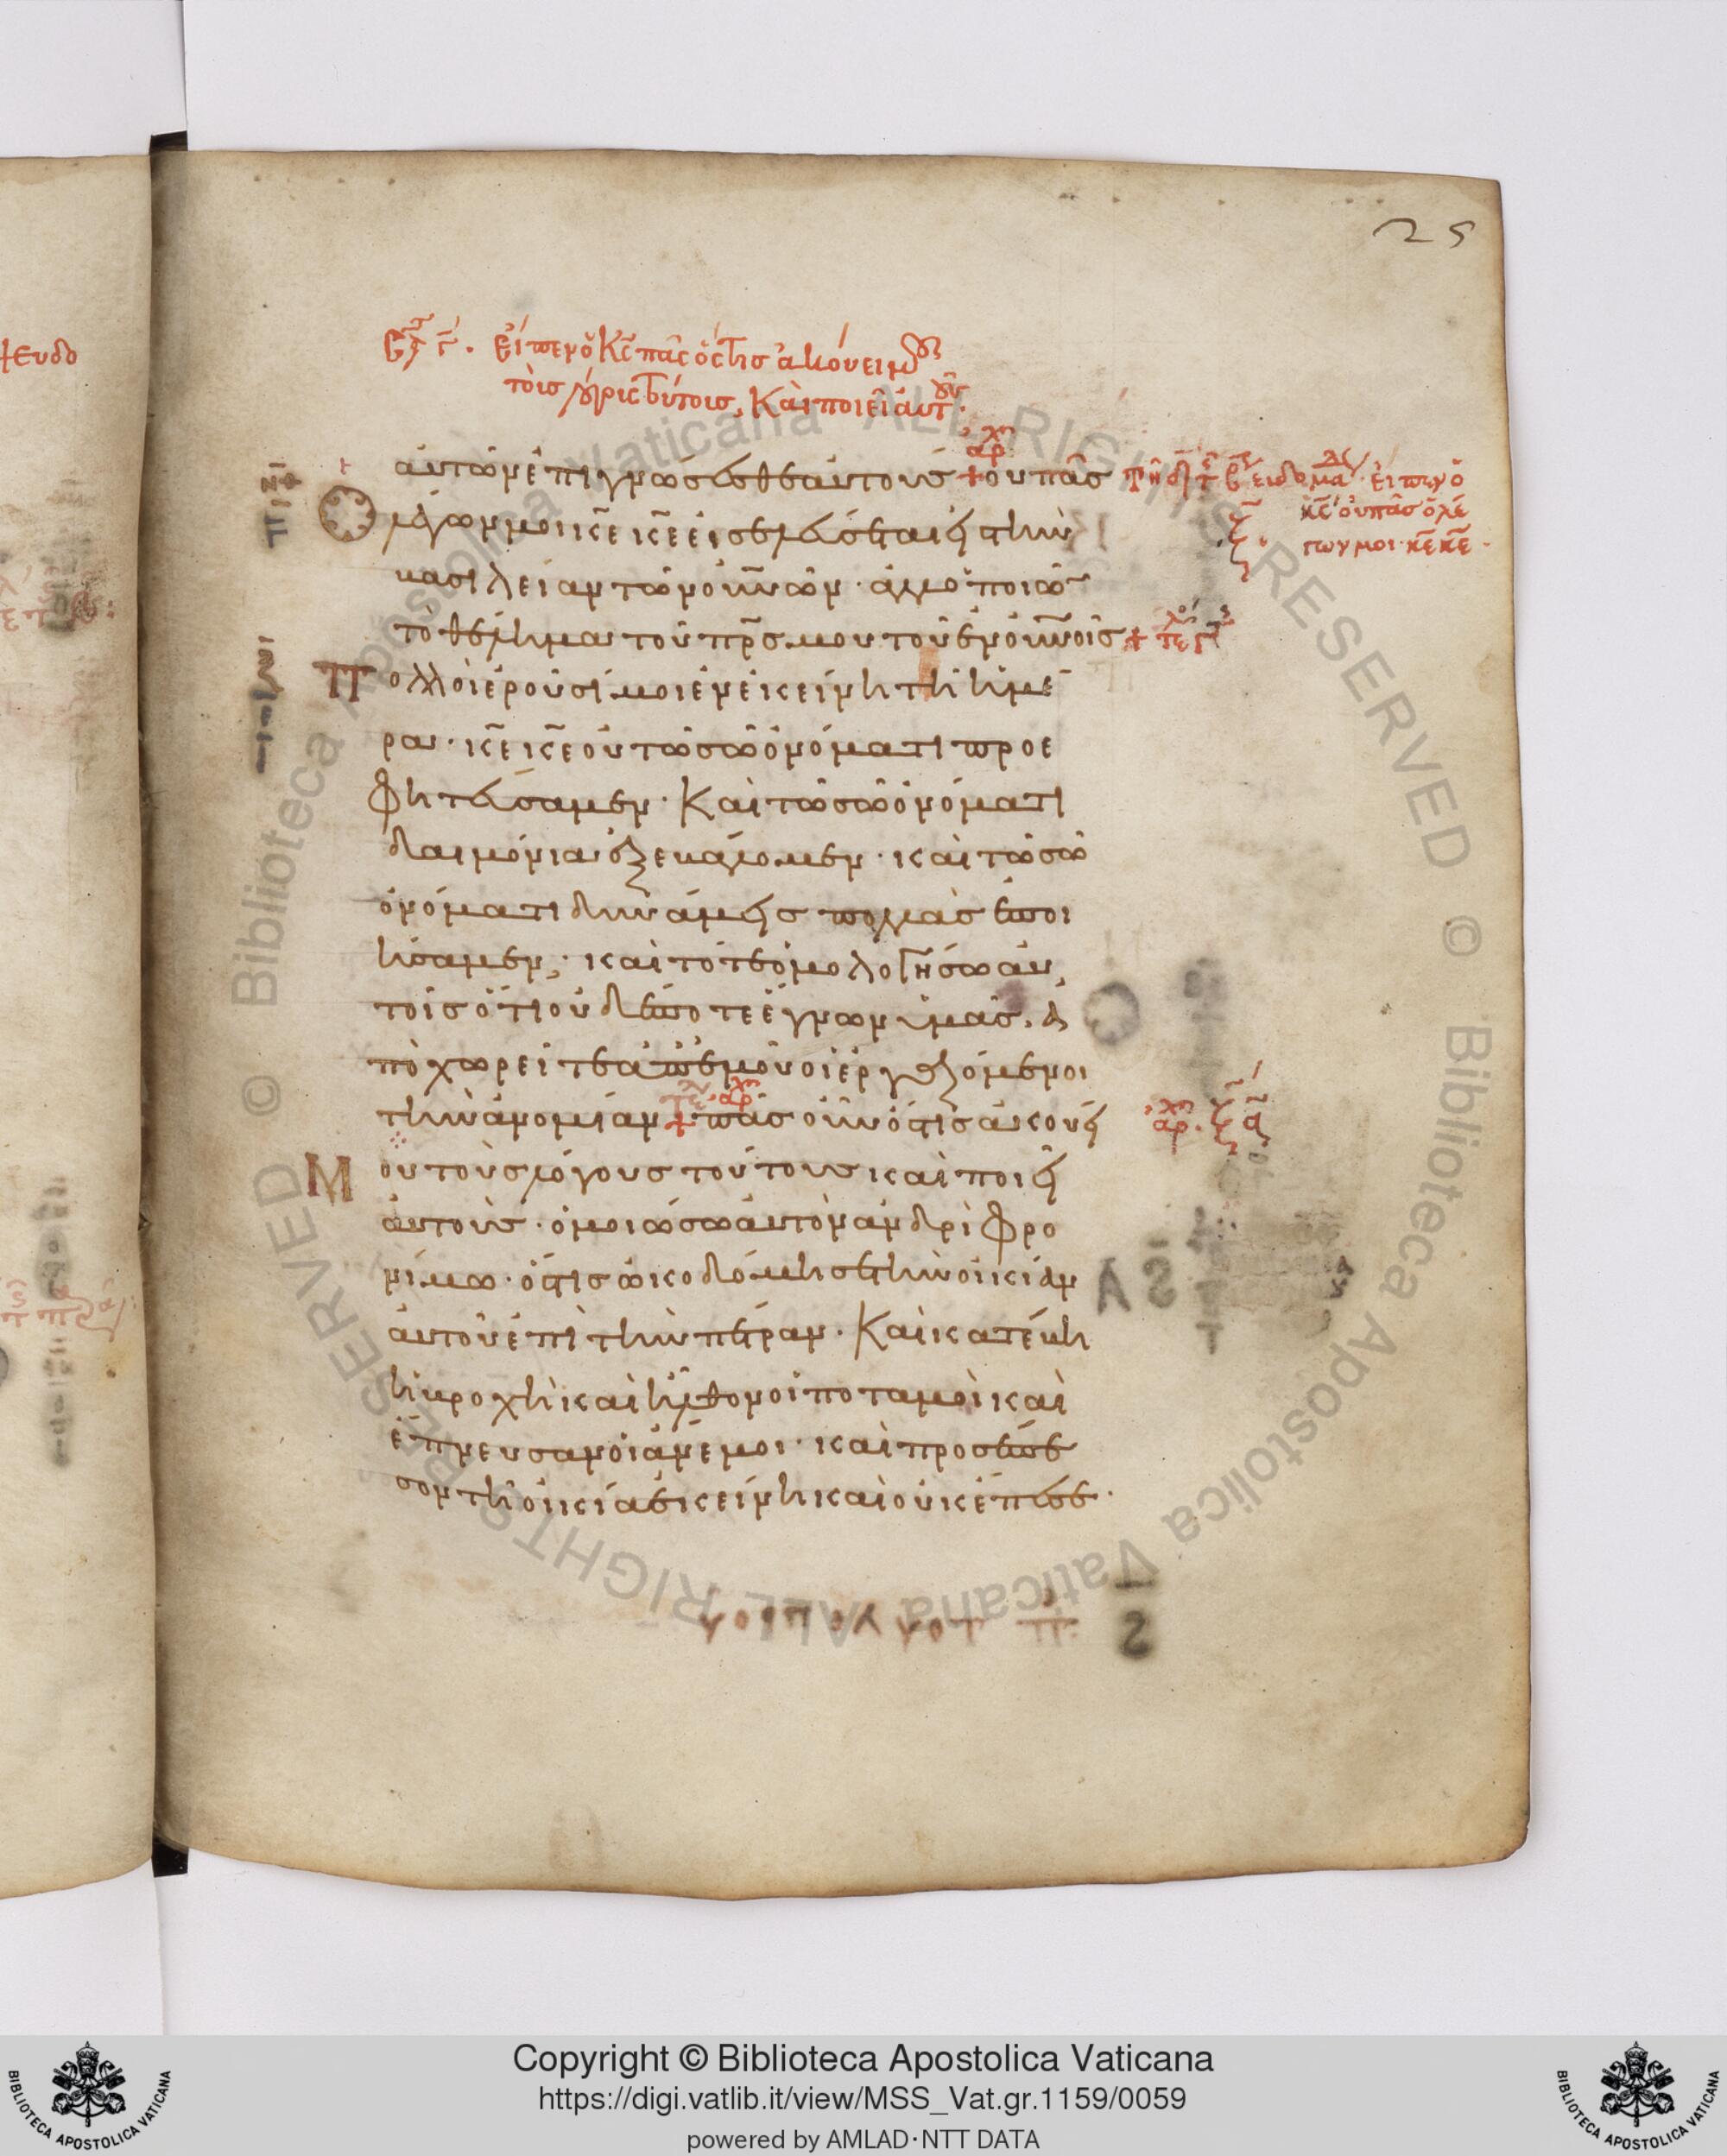 25
εἶπεν ὁ κ̅ς̅ πᾶς ὅστις ἀκούει μου
τοὺς λόγους τούτους, καὶ ποιεῖ αὐτούς
αὐτῶν ἐπιγνώσεσθε αὐτούς + οὐ πᾶς
ὁ λέγων μοι κ̅ε̅ κ̅ε̅ εἰσελεύσεται εἰς τὴν
βασιλείαν τῶν οὐνῶν · ἀλλ ὁ ποιῶν
τὸ θέλημα τοῦ πρ̅ς̅ μου τοῦ ἐν οὐνοῖς +
Πολλοὶ ἐροῦσί μοι ἐν ἐκείνη τῆ ἡμέ
ρα · κ̅ε̅ κ̅ε̅ οὐ τῶ σῶ ὀνόματι προε
φητεύσαμεν · Καὶ τῶ σῶ ὀνόματι
δαιμόνια ἐξεβάλομεν · καὶ τῶ σῶ
ὀνόματι δυνάμεις πολλὰς ἐποι
ήσαμεν · καὶ τότε ὁμολογήσω αὐ
τοῖς ὅτι οὐδέποτε ἔγνων ὑμᾶς · ἀ
ποχωρεῖτε ἀπ ἐμοῦ οἱ ἐργαζόμενοι
τὴν ἀνομίαν + πᾶς οὖν ὅστις ἀκούει
Μου τοὺς λόγους τούτους καὶ ποιεῖ
αὐτούς · ὁμοιώσω αὐτὸν ἀνδρὶ φρο
νίμω · ὅστις ὠκοδόμησε τὴν οἰκίαν
αὐτοῦ ἐπὶ τὴν πέτραν · Καὶ κατέβη
ἡ βροχὴ καὶ ἦλθον οἱ ποταμοὶ καὶ
ἔπνευσαν οἱ ἄνεμοι · καὶ προσέπε
σον τῆ οἰκία ἐκείνη καὶ οὐκ ἔπεσε ·
εἶπεν ὁ
κ̅ς̅ οὐ πᾶς ὁ λέ
γων μοι κ̅ε̅ κ̅ε̅ ·
Copyright © Biblioteca Apostolica Vaticana
https://digi.vatlib.it/view/MSS_Vat.gr.1159/0059
powered by AMLAD·NTT DATA
BIBLIOTECA APOSTOLICA VATICANA
BIBLIOTECA APOSTOLICA VATICANA
© Biblioteca Apostolica Vaticana ALL RIGHTS RESERVED
© Biblioteca Apostolica Vaticana ALL RIGHTS RESERVED